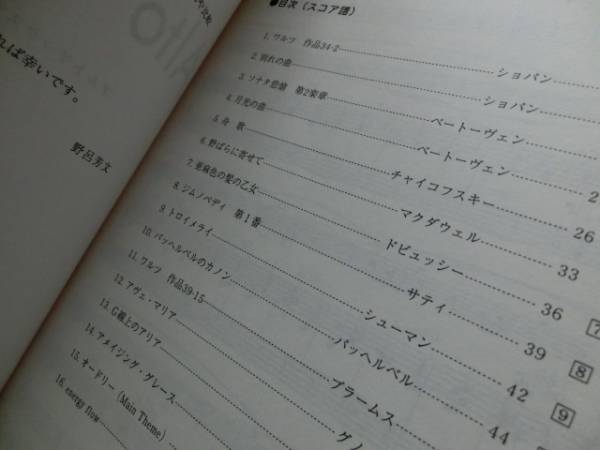 Alto
れば幸いです。
野呂芳文
●目次（スコア譜）
1. ワルツ 作品34-2 ショパン
2. 別れの曲 ショパン
3. ソナタ悲愴 第2楽章 ベートーヴェン
4. 月光の曲 ベートーヴェン 2
5. 舟 歌 チャイコフスキー 26
6. 野ばらに寄せて マクダウェル 33
7. 亜麻色の髪の乙女 ドビュッシー 36 7
8. ジムノペディ 第1番 サティ 39 8
9. トロイメライ シューマン 42 9
10. パッヘルベルのカノン パッヘルベル 44
11. ワルツ 作品39-15 ブラームス
12. アヴェ・マリア グノ
13. G線上のアリア
14. アメイジング・グレース
15. オードリー（Main Theme）
16. energy flow